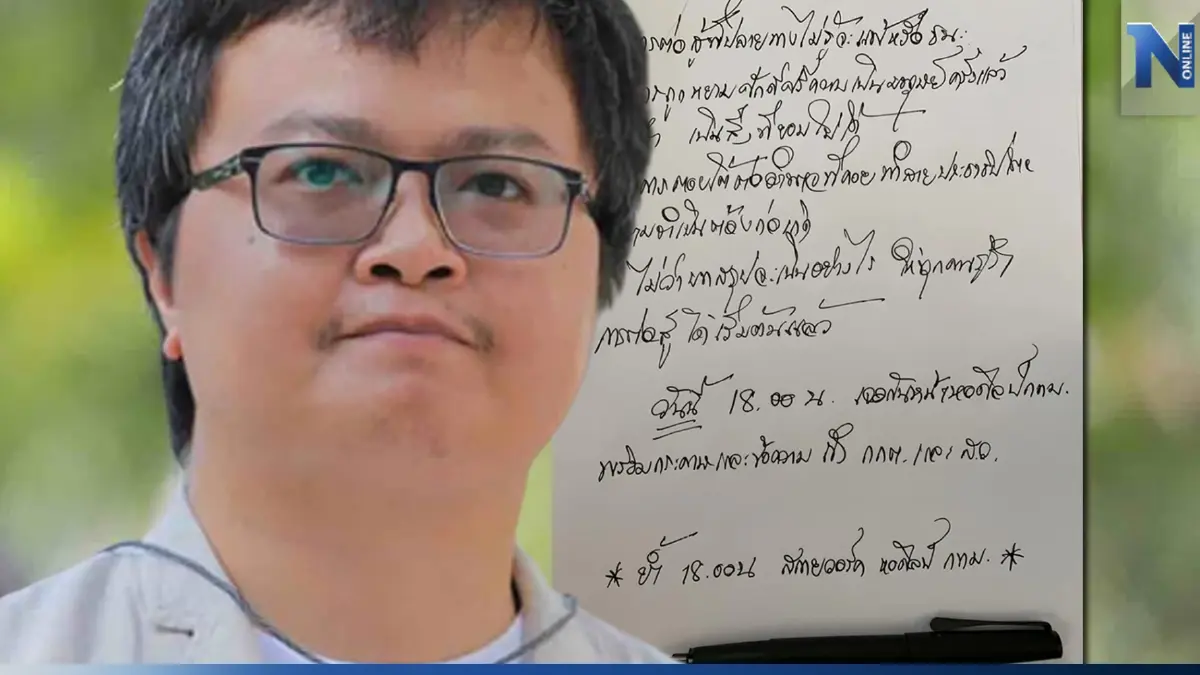 การต่อสู้ที่ปลายทางไม่รู้จะแพ้หรือชนะ
การถูกหยามศักดิ์ศรีความเป็นมนุษย์ครั้งแล้ว
เป็นสิ่งที่ยอมไม่ได้
การตอบโต้ต่ออำนาจที่คอยทำลายประชาธิปไตย
ความจำเป็นต้องก่อเกิด
ไม่ว่าบทสรุปจะเป็นอย่างไร ให้ทุกคนรู้ว่า
การต่อสู้ได้เริ่มต้นแล้ว
วันนี้ 18.00 น. เจอกันหน้าหอศิลป์ กทม.
พร้อมกระดาษและข้อความถึง กกต. และ สว.
* ย้ำ 18.00น สกายวอร์ค หอศิลป์ กทม. *
N ONLINE